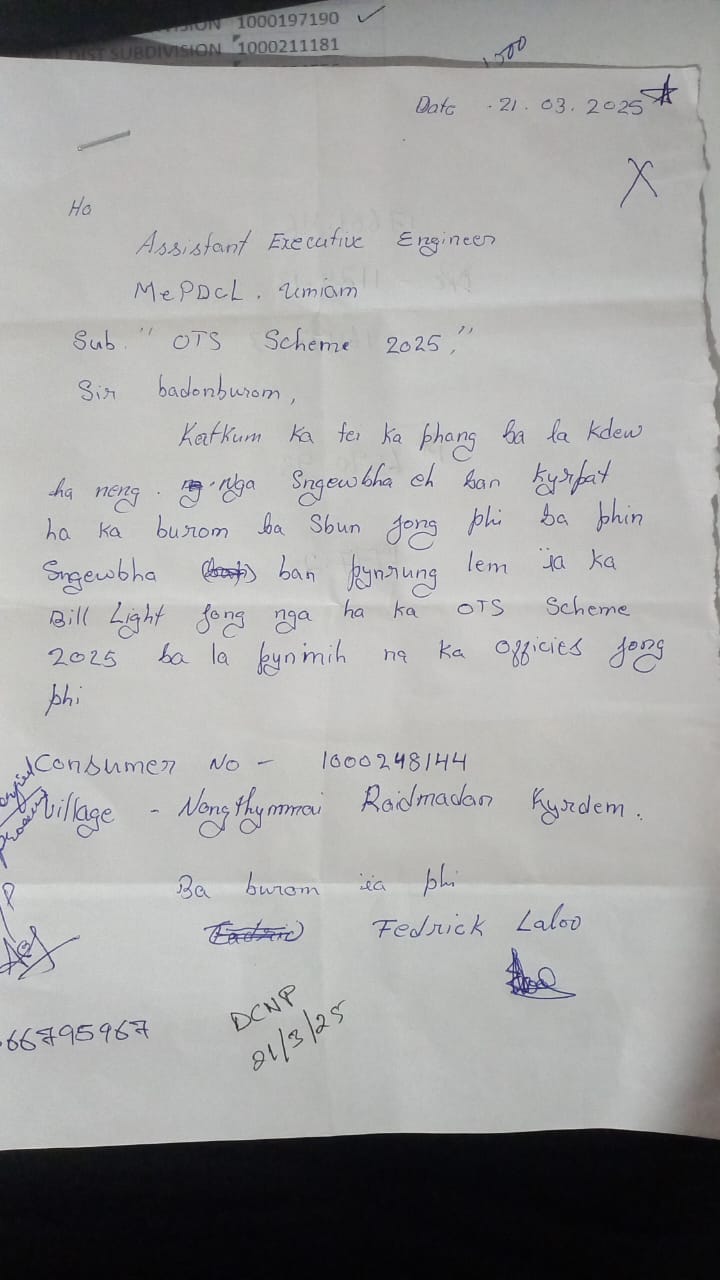 1000197190
DIST SUBDIVISION 1000211181
1000
Date . 21. 03. 2025
Ha
Assistant Executive Engineer
MePDCL. Umiam
Sub. " OTS Scheme 2025."
Sir badonburom,
Katkum ka tei ka phang ba la kdew
ha neng. nga Sngewbha eh ban kyrpat
ha ka burom ba Sbun jong phi ba phin
Sngewbha ban pynrung lem ïa ka
Bill Light jong nga ha ka OTS Scheme
2025 ba la pynmih na ka Officies jong
phi
Consumer No - 1000248144
Village - Nongthymmai Raidmadan Kyrdem.
Ba burom ïa phi
Fedrick Laloo
66795967
DCNP
21/3/25